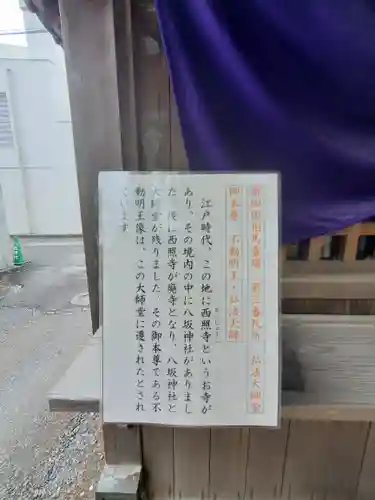 御本尊 不動明王・弘法大師
江戸時代、この地に西照寺というお寺が
あり、その境内の中に八坂神社がありまし
た。後に西照寺が廃寺となり、八坂神社と
大師堂が残りました。その御本尊である不
動明王像は、この大師堂に遷されたとされ
ています。